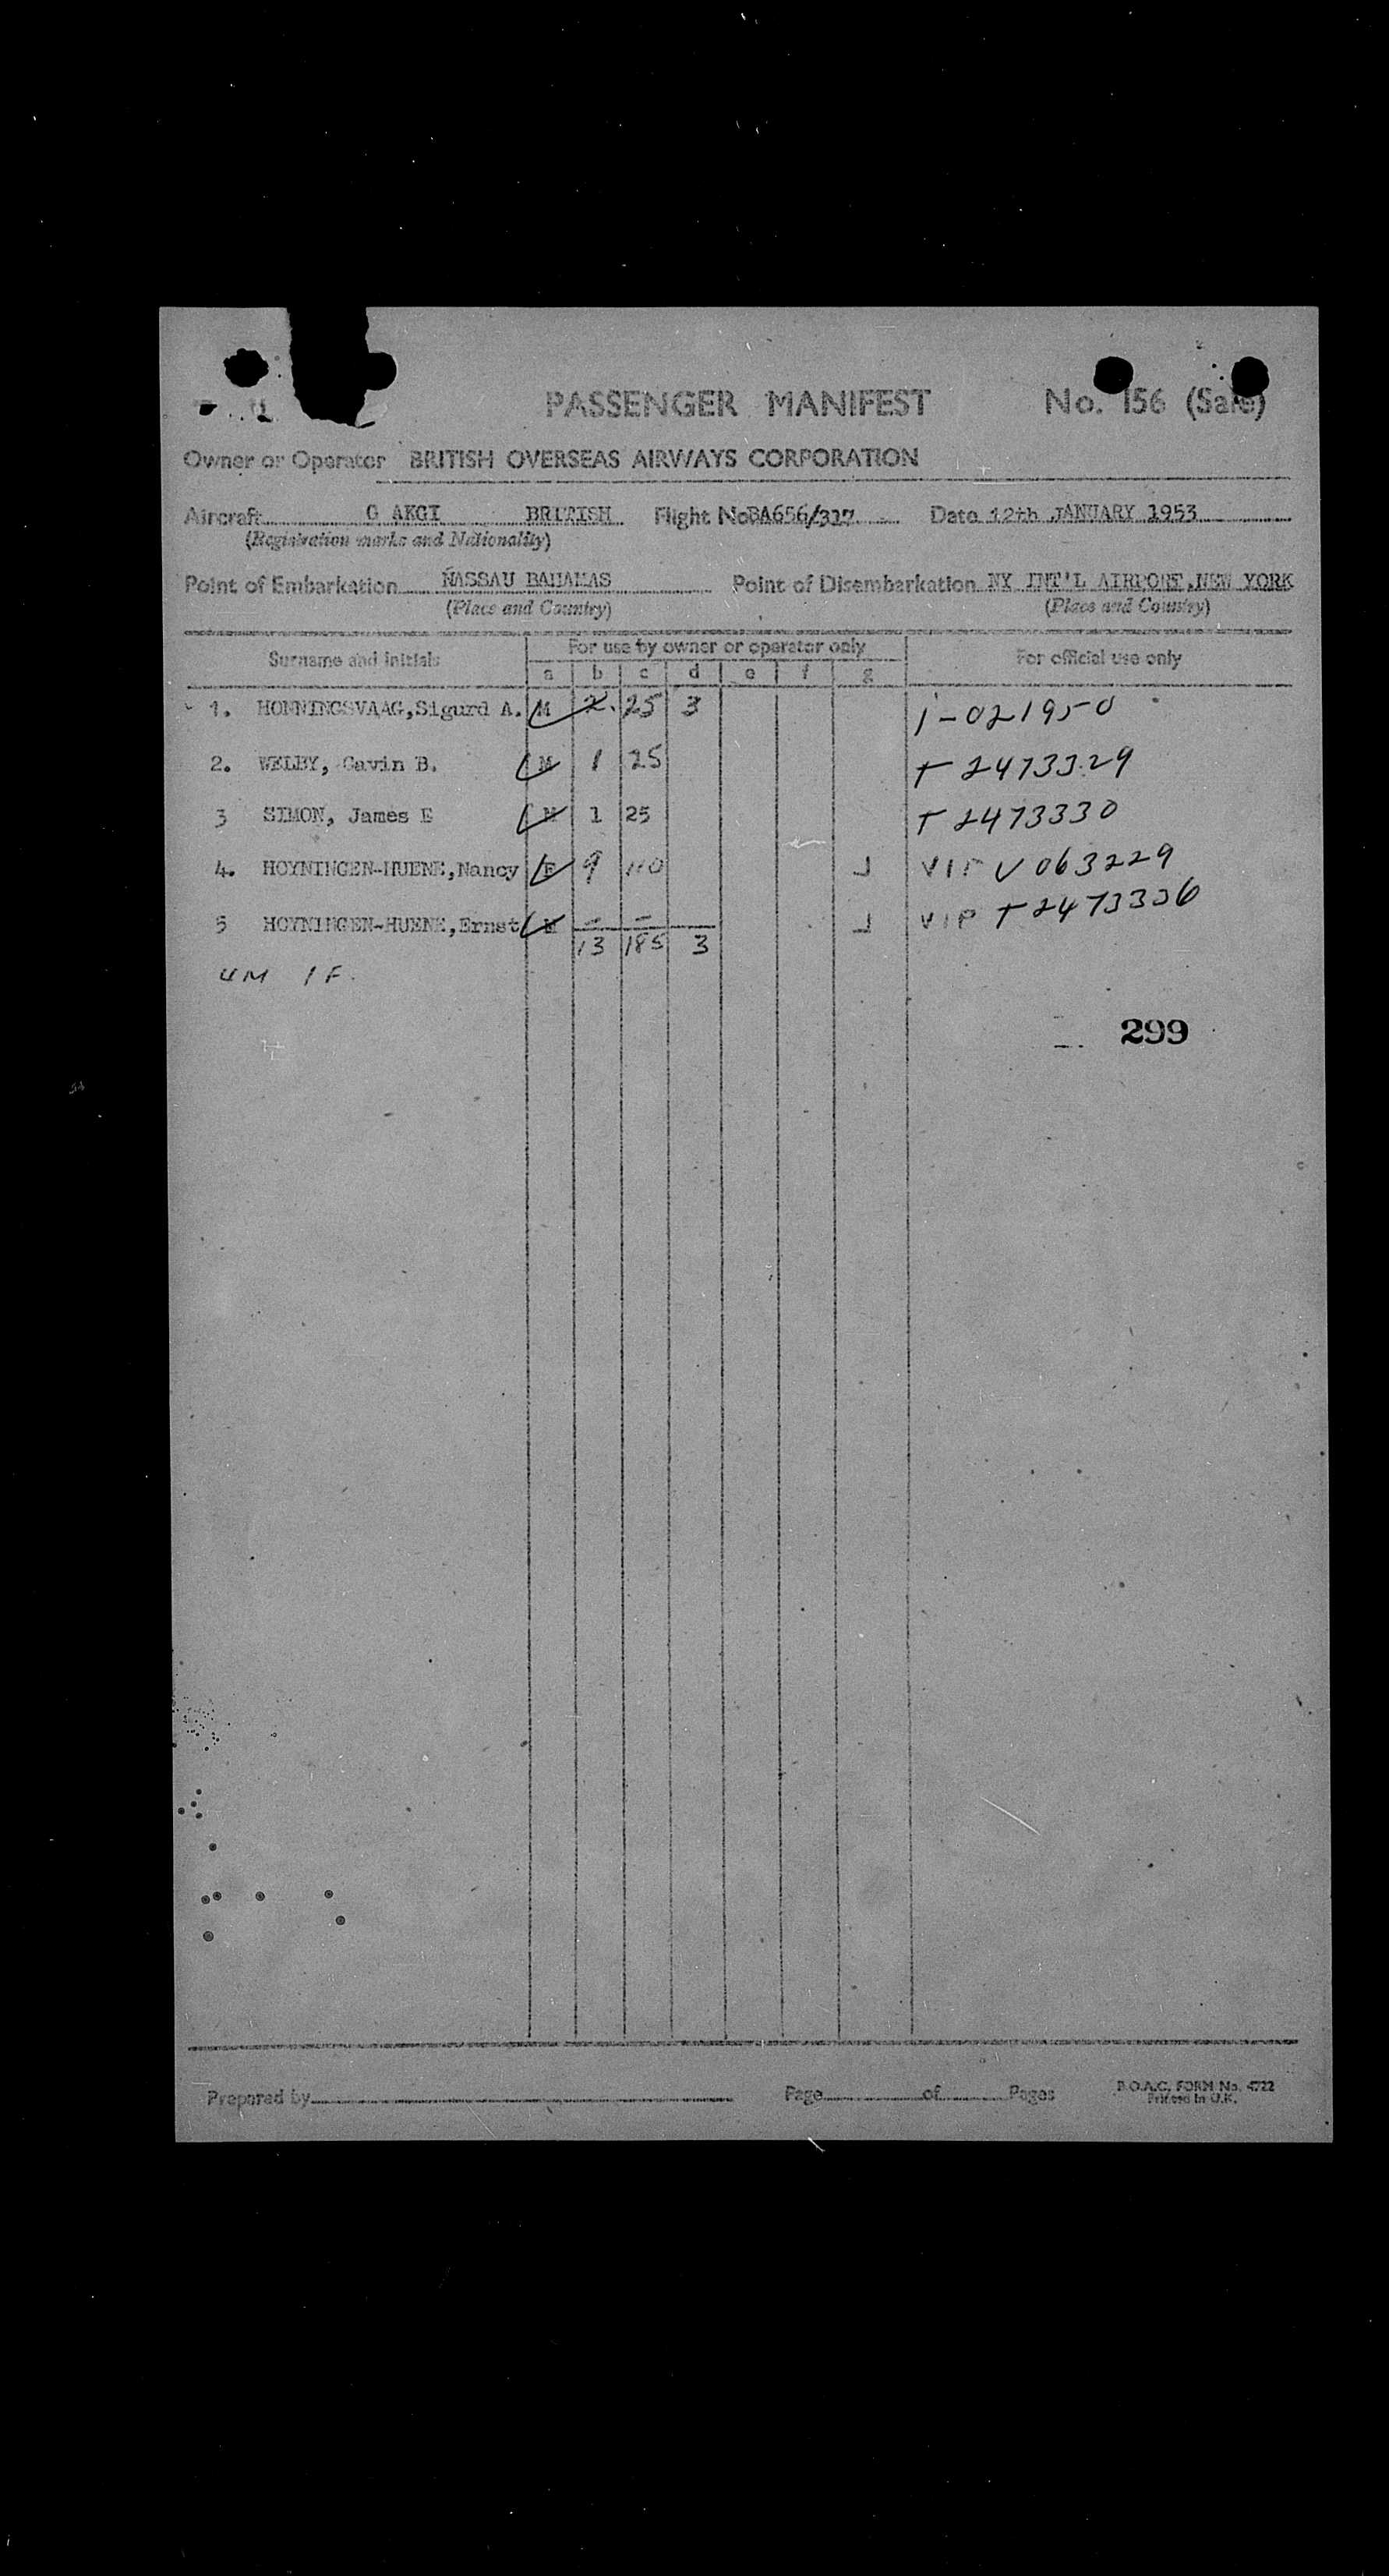 PASSENGER MANIFEST No. 156 (Sale)
Owner or Operator BRITISH OVERSEAS AIRWAYS CORPORATION
Aircraft G AKGI BRITISH Flight No. BA656/317 Date 12th JANUARY 1953
(Registration marks and Nationality)
Point of Embarkation NASSAU BAHAMAS Point of Disembarkation NY INT'L AIRPORT, NEW YORK
(Place and Country) (Place and Country)
Surname and initials For use by owner or operator only For official use only
a b c d e f g
1. HONNINGSVAAG, Sigurd A. M 2. 25 3 1-021950
2. WELBY, Gavin B. M 1 25 T 2473329
3 SIMON, James E M 1 25 T 2473330
4. HOYNINGEN-HUENE, Nancy F 9 110 VIP V 063229
5 HOYNINGEN-HUENE, Ernst M - - VIP T 2473336
13 185 3
4M 1F.
299
Prepared by Page of Pages B.O.A.C. FORM No. 4722
Printed in U.K.